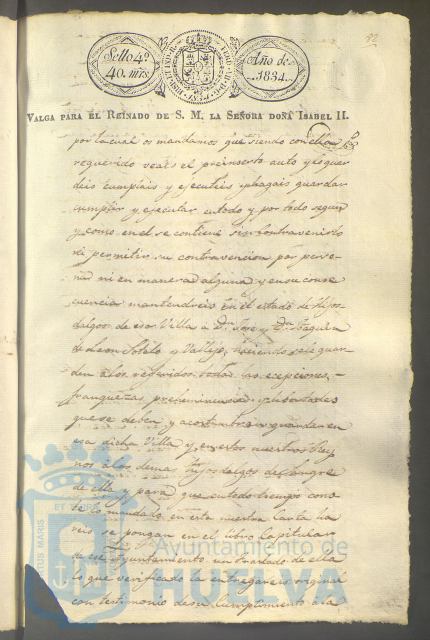 92
Sello 4º
40. mrs
Año de
1834.
VALGA PARA EL REINADO DE S. M. LA SEÑORA DOÑA ISABEL II.
por la cual os mandamos que siendo con ella
requerido veais el preinserto auto y lo guar
deis cumplais y ejecuteis y hagais guardar
cumplir y ejecutar en todo y por todo segun
y como en el se contiene sin contravenirlo
ni permitir su contravencion por perso-
na ni en manera alguna y en su conse
cuencia mantendreis en el estado de Hijos
dalgos de esa Villa a Dn. Jose y Dn. Joaquin
de Leon Sotelo y Vallejo, haciendo se les guar
den a los referidos todas las ecepciones,
franquezas preheminencias y libertades
que se deben y acostumbran guardar en
esa dicha Villa y en estos nuestros Rey
nos a los demas hijosdalgos de Sangre
de ella y para que en todo tiempo cons
te lo mandado en esta nuestra Carta ha
reis se ponga en el libro Capitular
de ese Ayuntamiento un traslado de ella
lo que verificado la entregareis original
con testimonio de su cumplimiento a la
ET
Ayuntamiento de
HUELVA